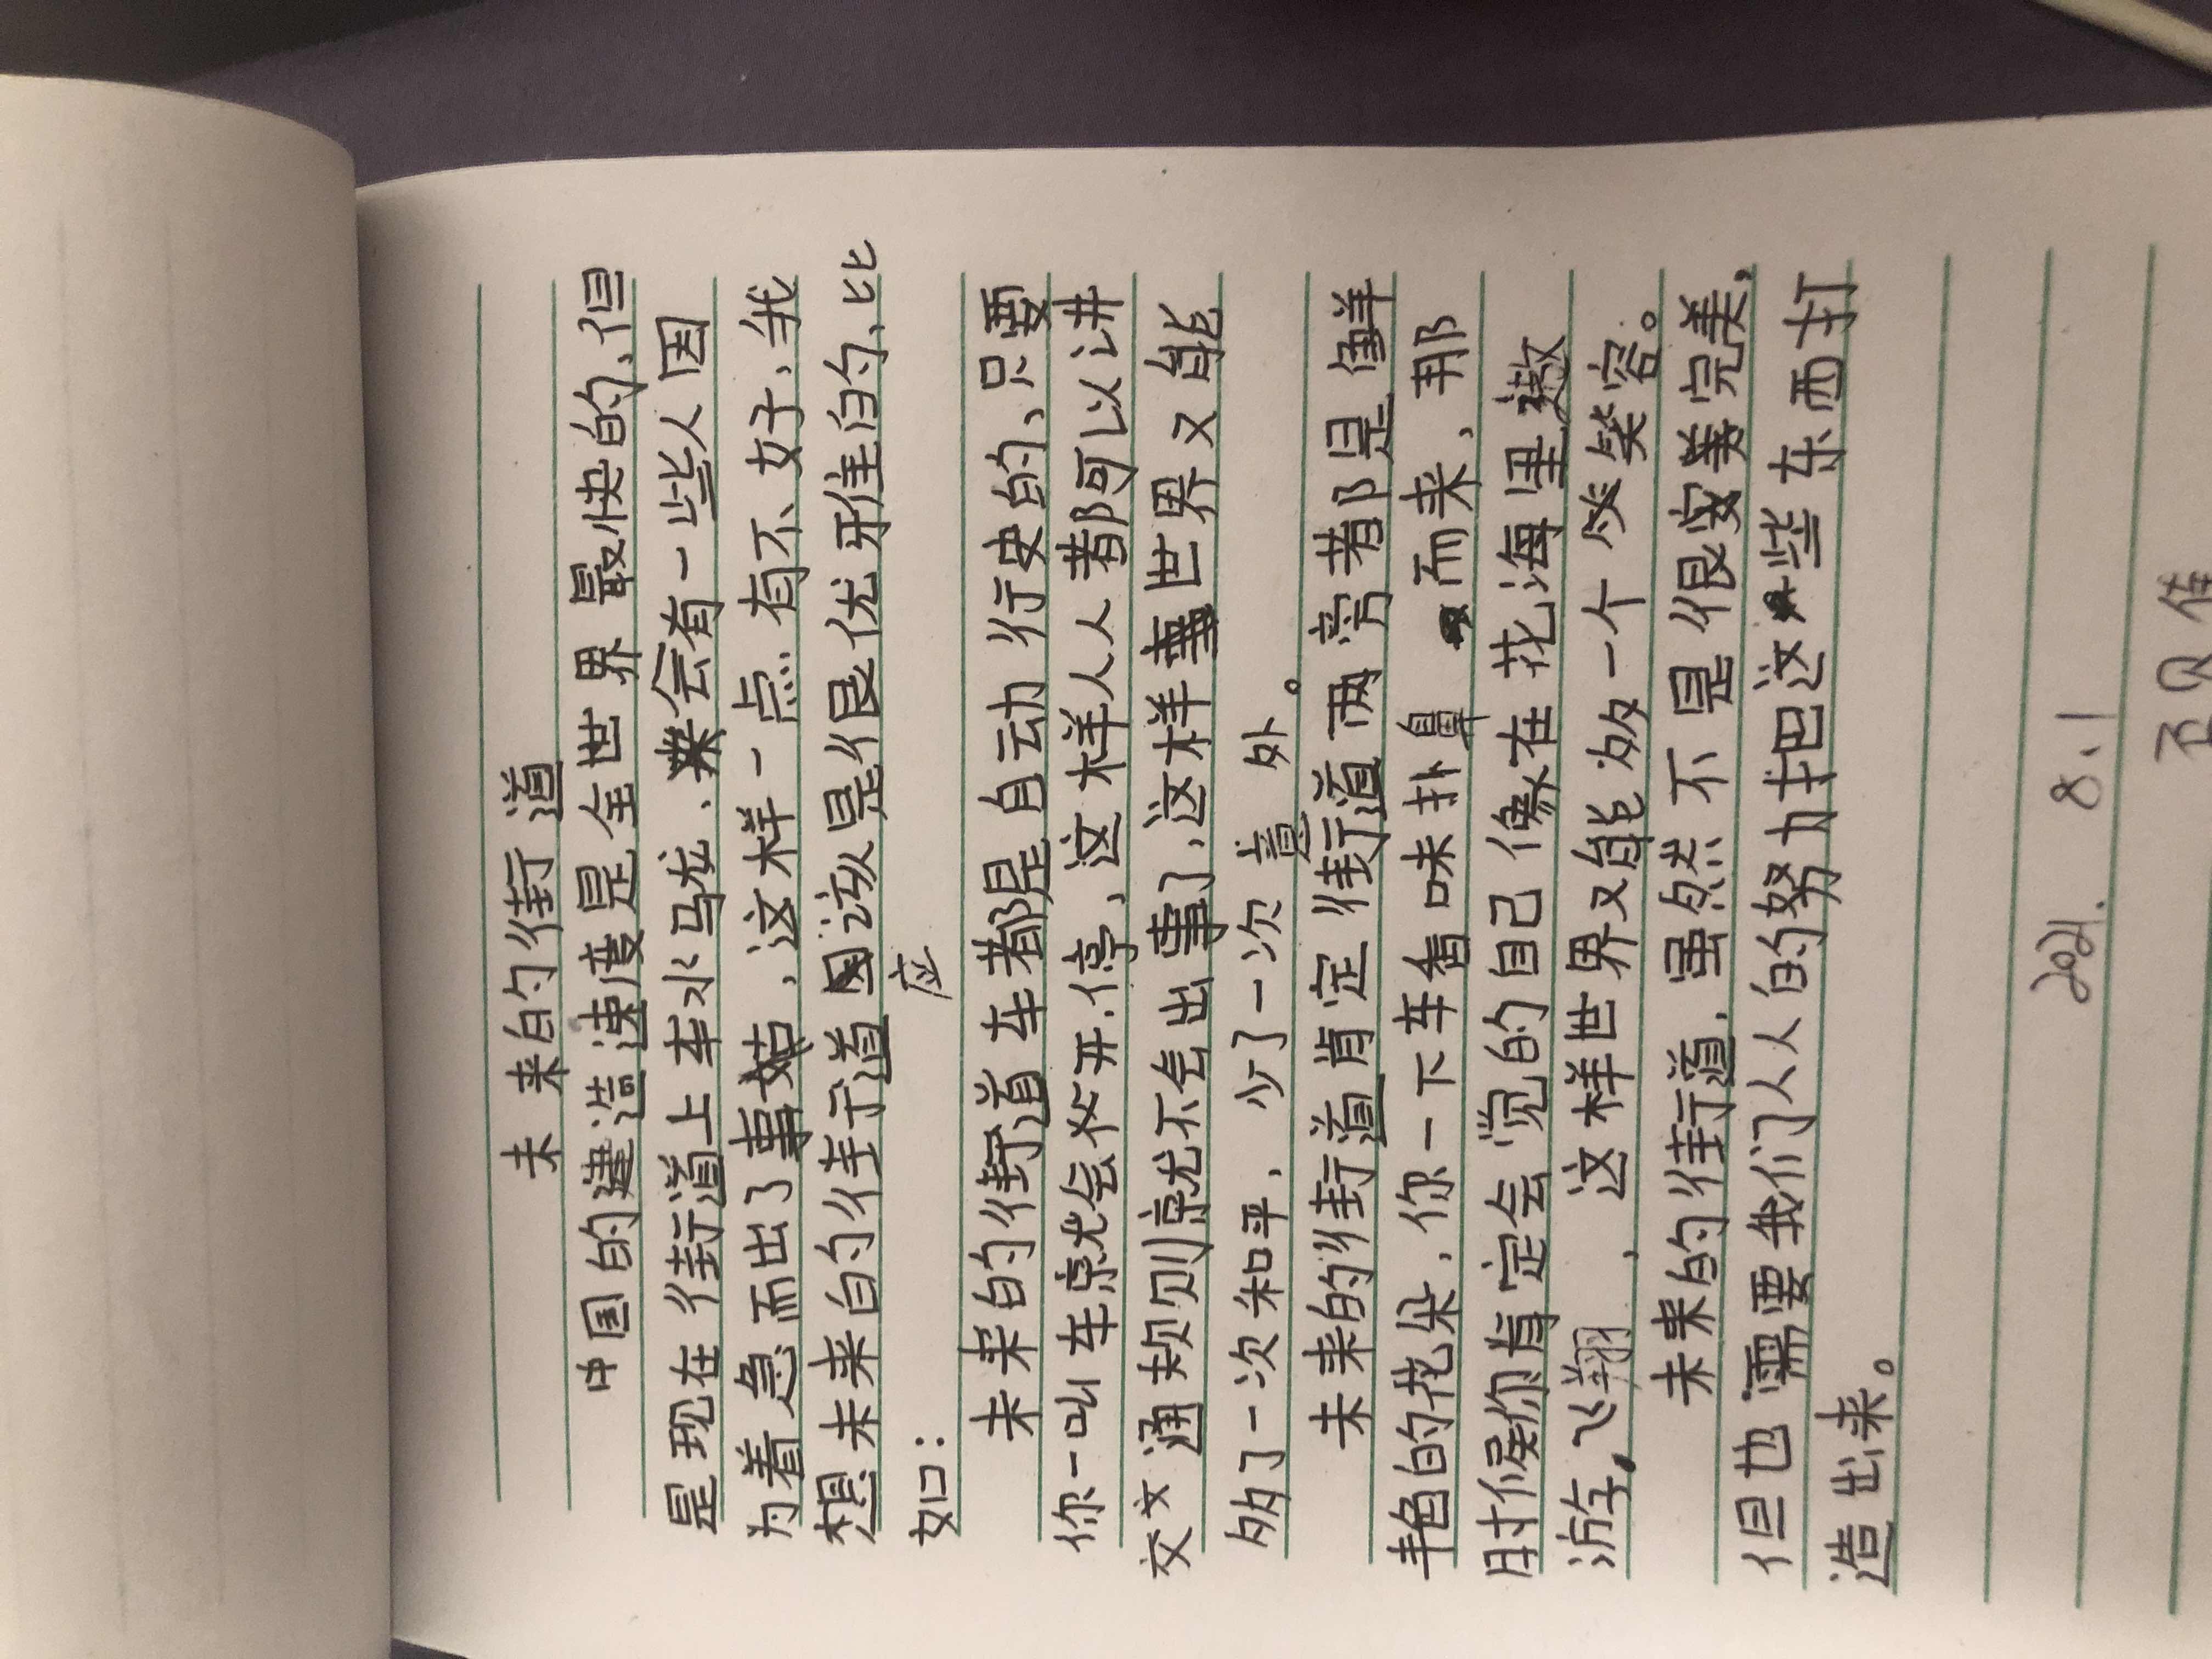 未来的街道
中国的建造速度是全世界最快的、但
是现在街道上车水马龙、会有一些人因
为着急而出了事故、这样一点有不好、我
想未来的街道应该是很优雅的、比
如：
未来的街道车都是自动行史的、只要
你一叫车就会怀开、停、这样人人都可以讲
交通规则就不会出事了、这样世界又能
够了一次和平、少了一次意外。
未来的街道肯定街道两旁都是鲜
色的花朵、你一下车香味扑鼻而来、那
时候你肯定会觉的自己像在花海里遨
游、飞翔、这样世界又能够一个笑容。
未来的街道、虽然不是很完美、
但也需要我们人人的努力把这些东西打
造出来。
2021.8、1